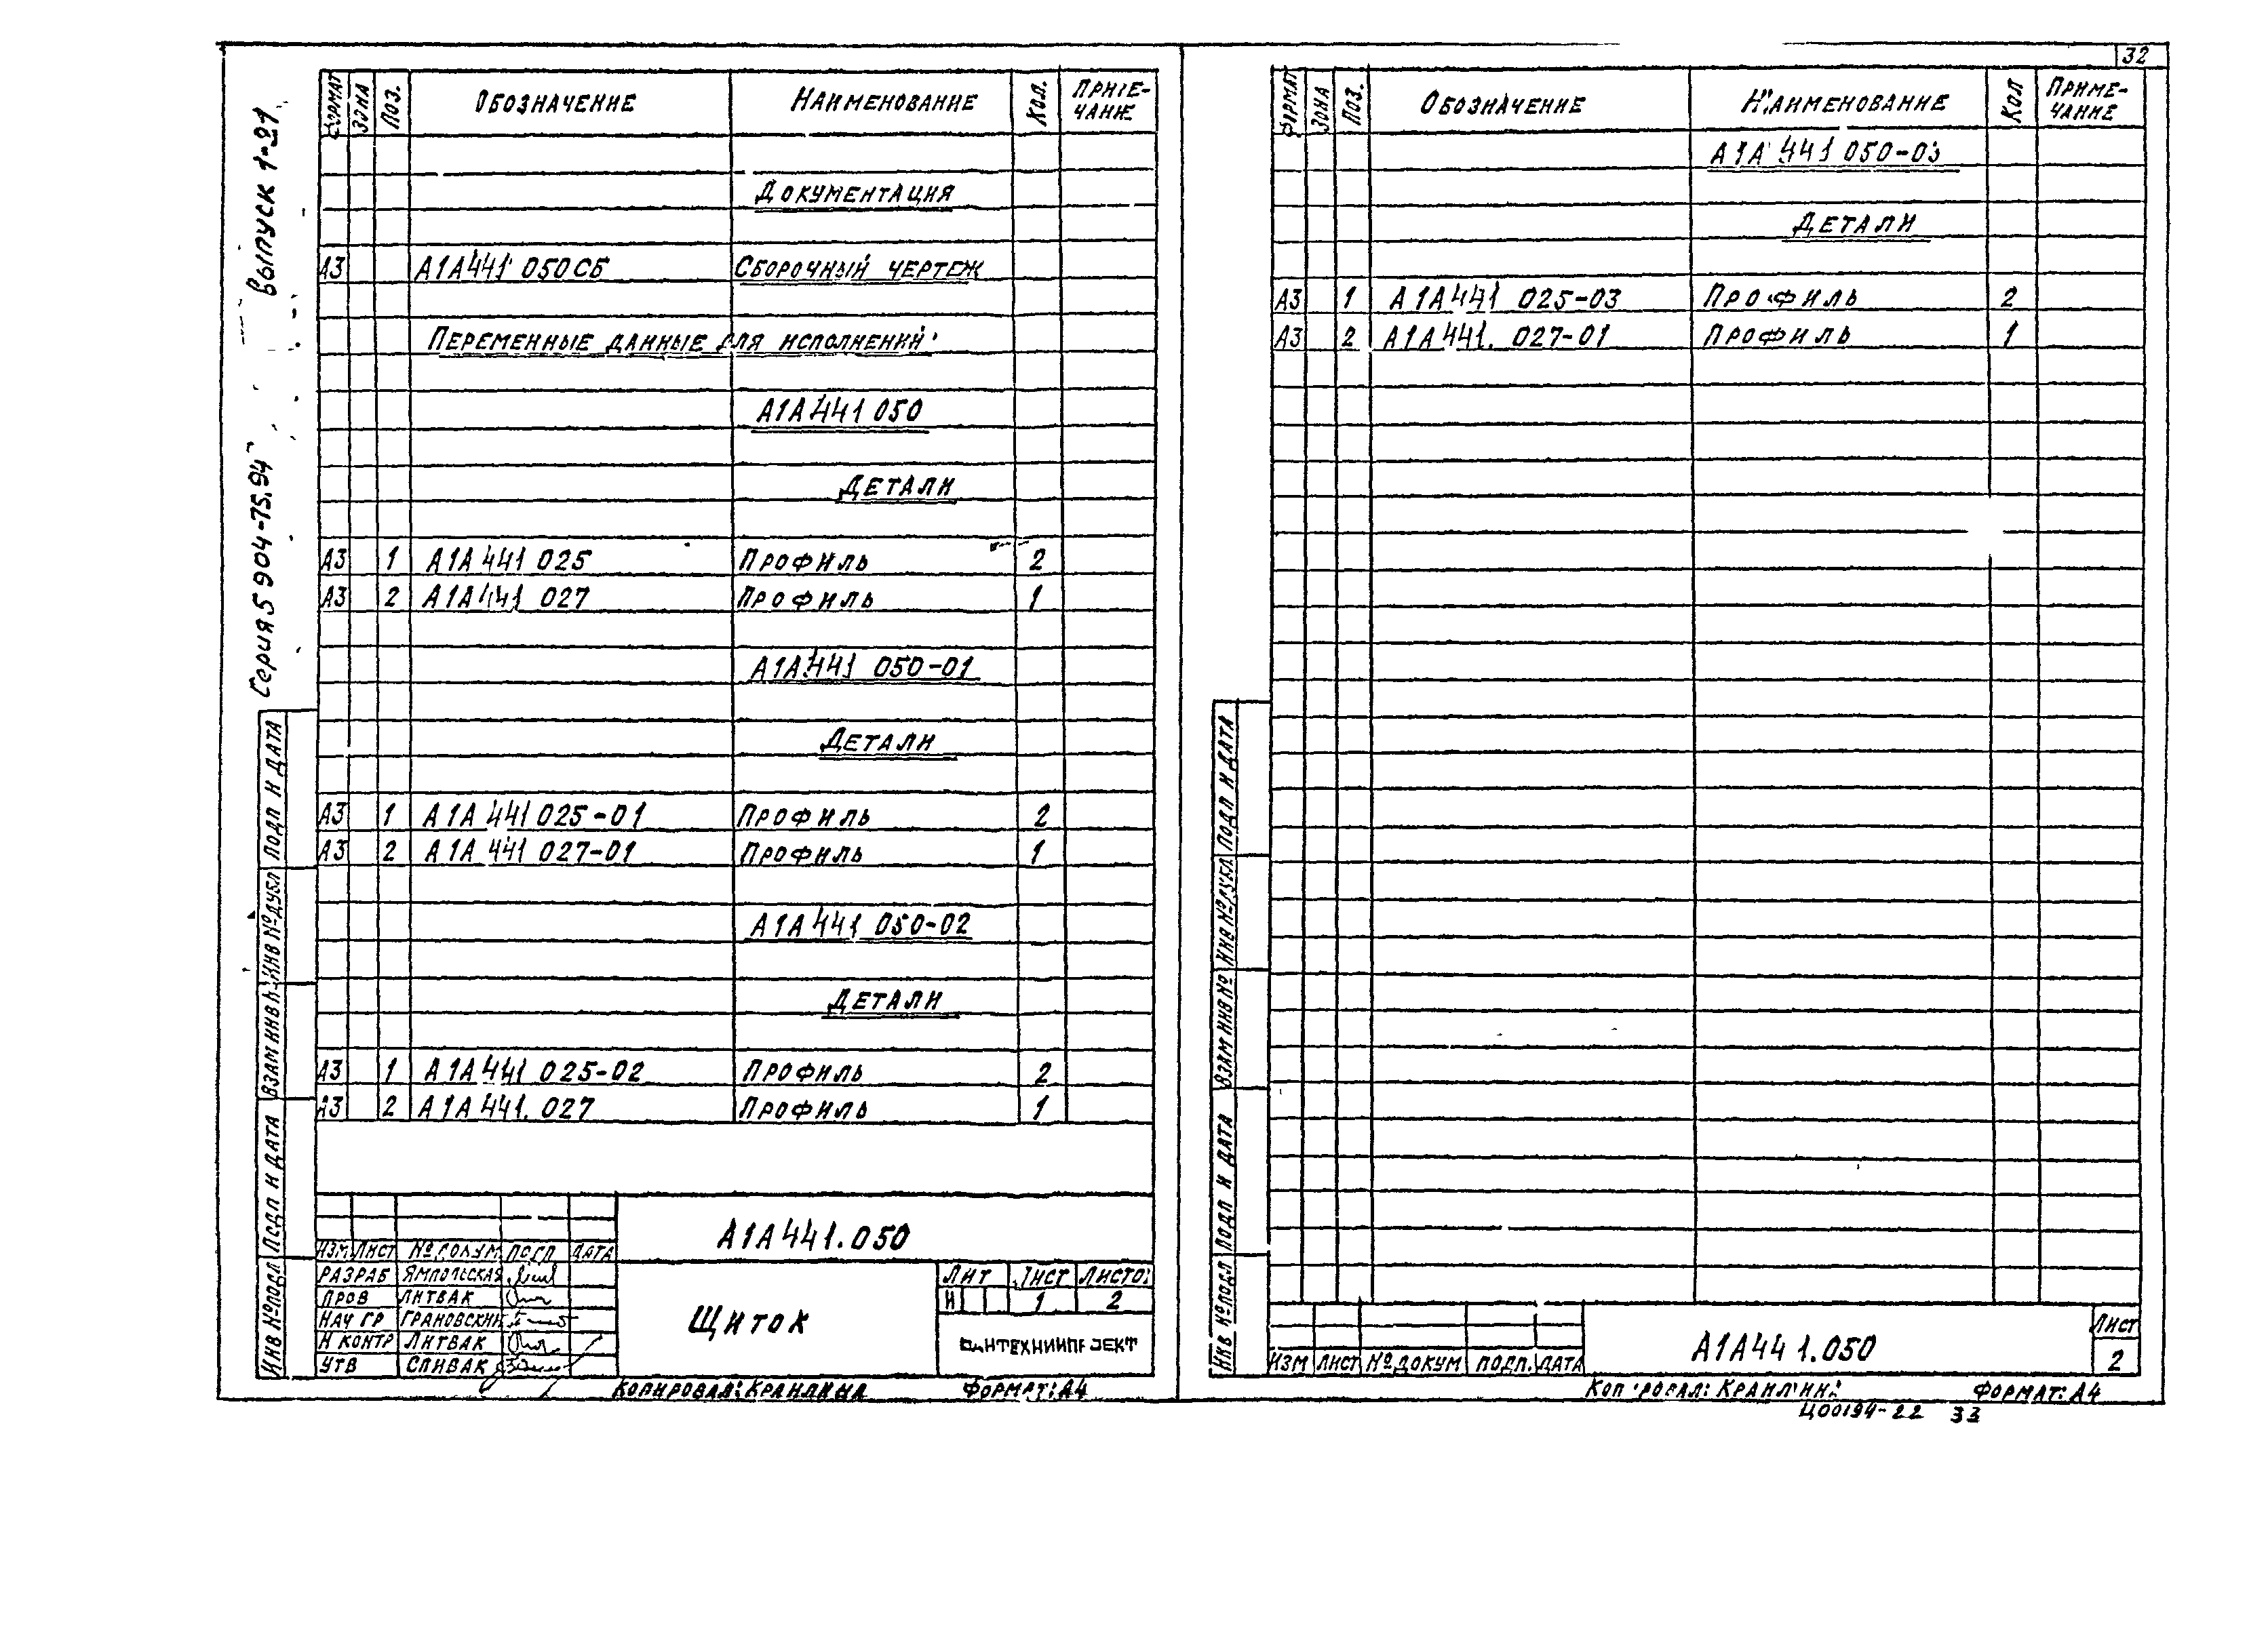 32
Серия 5 904-75.94 Выпуск 1-21
ФОРМАТ ЗОНА ПОЗ. ОБОЗНАЧЕНИЕ НАИМЕНОВАНИЕ КОЛ. ПРИМЕ-
ЧАНИЕ
ДОКУМЕНТАЦИЯ
А3 А1А441 050СБ СБОРОЧНЫЙ ЧЕРТЕЖ
ПЕРЕМЕННЫЕ ДАННЫЕ ДЛЯ ИСПОЛНЕНИЙ
А1А441 050
ДЕТАЛИ
А3 1 А1А441 025 ПРОФИЛЬ 2
А3 2 А1А441 027 ПРОФИЛЬ 1
А1А441 050-01
ДЕТАЛИ
А3 1 А1А 441 025-01 ПРОФИЛЬ 2
А3 2 А1А 441 027-01 ПРОФИЛЬ 1
А1А441 050-02
ДЕТАЛИ
А3 1 А1А441 025-02 ПРОФИЛЬ 2
А3 2 А1А441. 027 ПРОФИЛЬ 1
ИНВ № ПОДЛ ПОДП И ДАТА ВЗАМ ИНВ № ИНВ № ДУБЛ ПОДП И ДАТА
ИЗМ. ЛИСТ № ДОКУМ ПОДП ДАТА
РАЗРАБ ЯМПОЛЬСКАЯ
ПРОВ ЛИТВАК
НАЧ ГР ГРАНОВСКИЙ
Н КОНТР ЛИТВАК
УТВ СПИВАК
А1А441.050
ЩИТОК
ЛИТ ЛИСТ ЛИСТОВ
И 1 2
САНТЕХНИИПРОЕКТ
КОПИРОВАЛ: КРАНЛИНА ФОРМАТ: А4
ФОРМАТ ЗОНА ПОЗ. ОБОЗНАЧЕНИЕ НАИМЕНОВАНИЕ КОЛ ПРИМЕ-
ЧАНИЕ
А1А 441 050-03
ДЕТАЛИ
А3 1 А1А441 025-03 ПРОФИЛЬ 2
А3 2 А1А441. 027-01 ПРОФИЛЬ 1
ИНВ № ПОДЛ ПОДП И ДАТА ВЗАМ ИНВ № ИНВ № ДУБЛ ПОДП И ДАТА
ИЗМ ЛИСТ № ДОКУМ ПОДП. ДАТА
А1А441.050
ЛИСТ
2
ФОРМАТ: А4
Ц00194-22 33